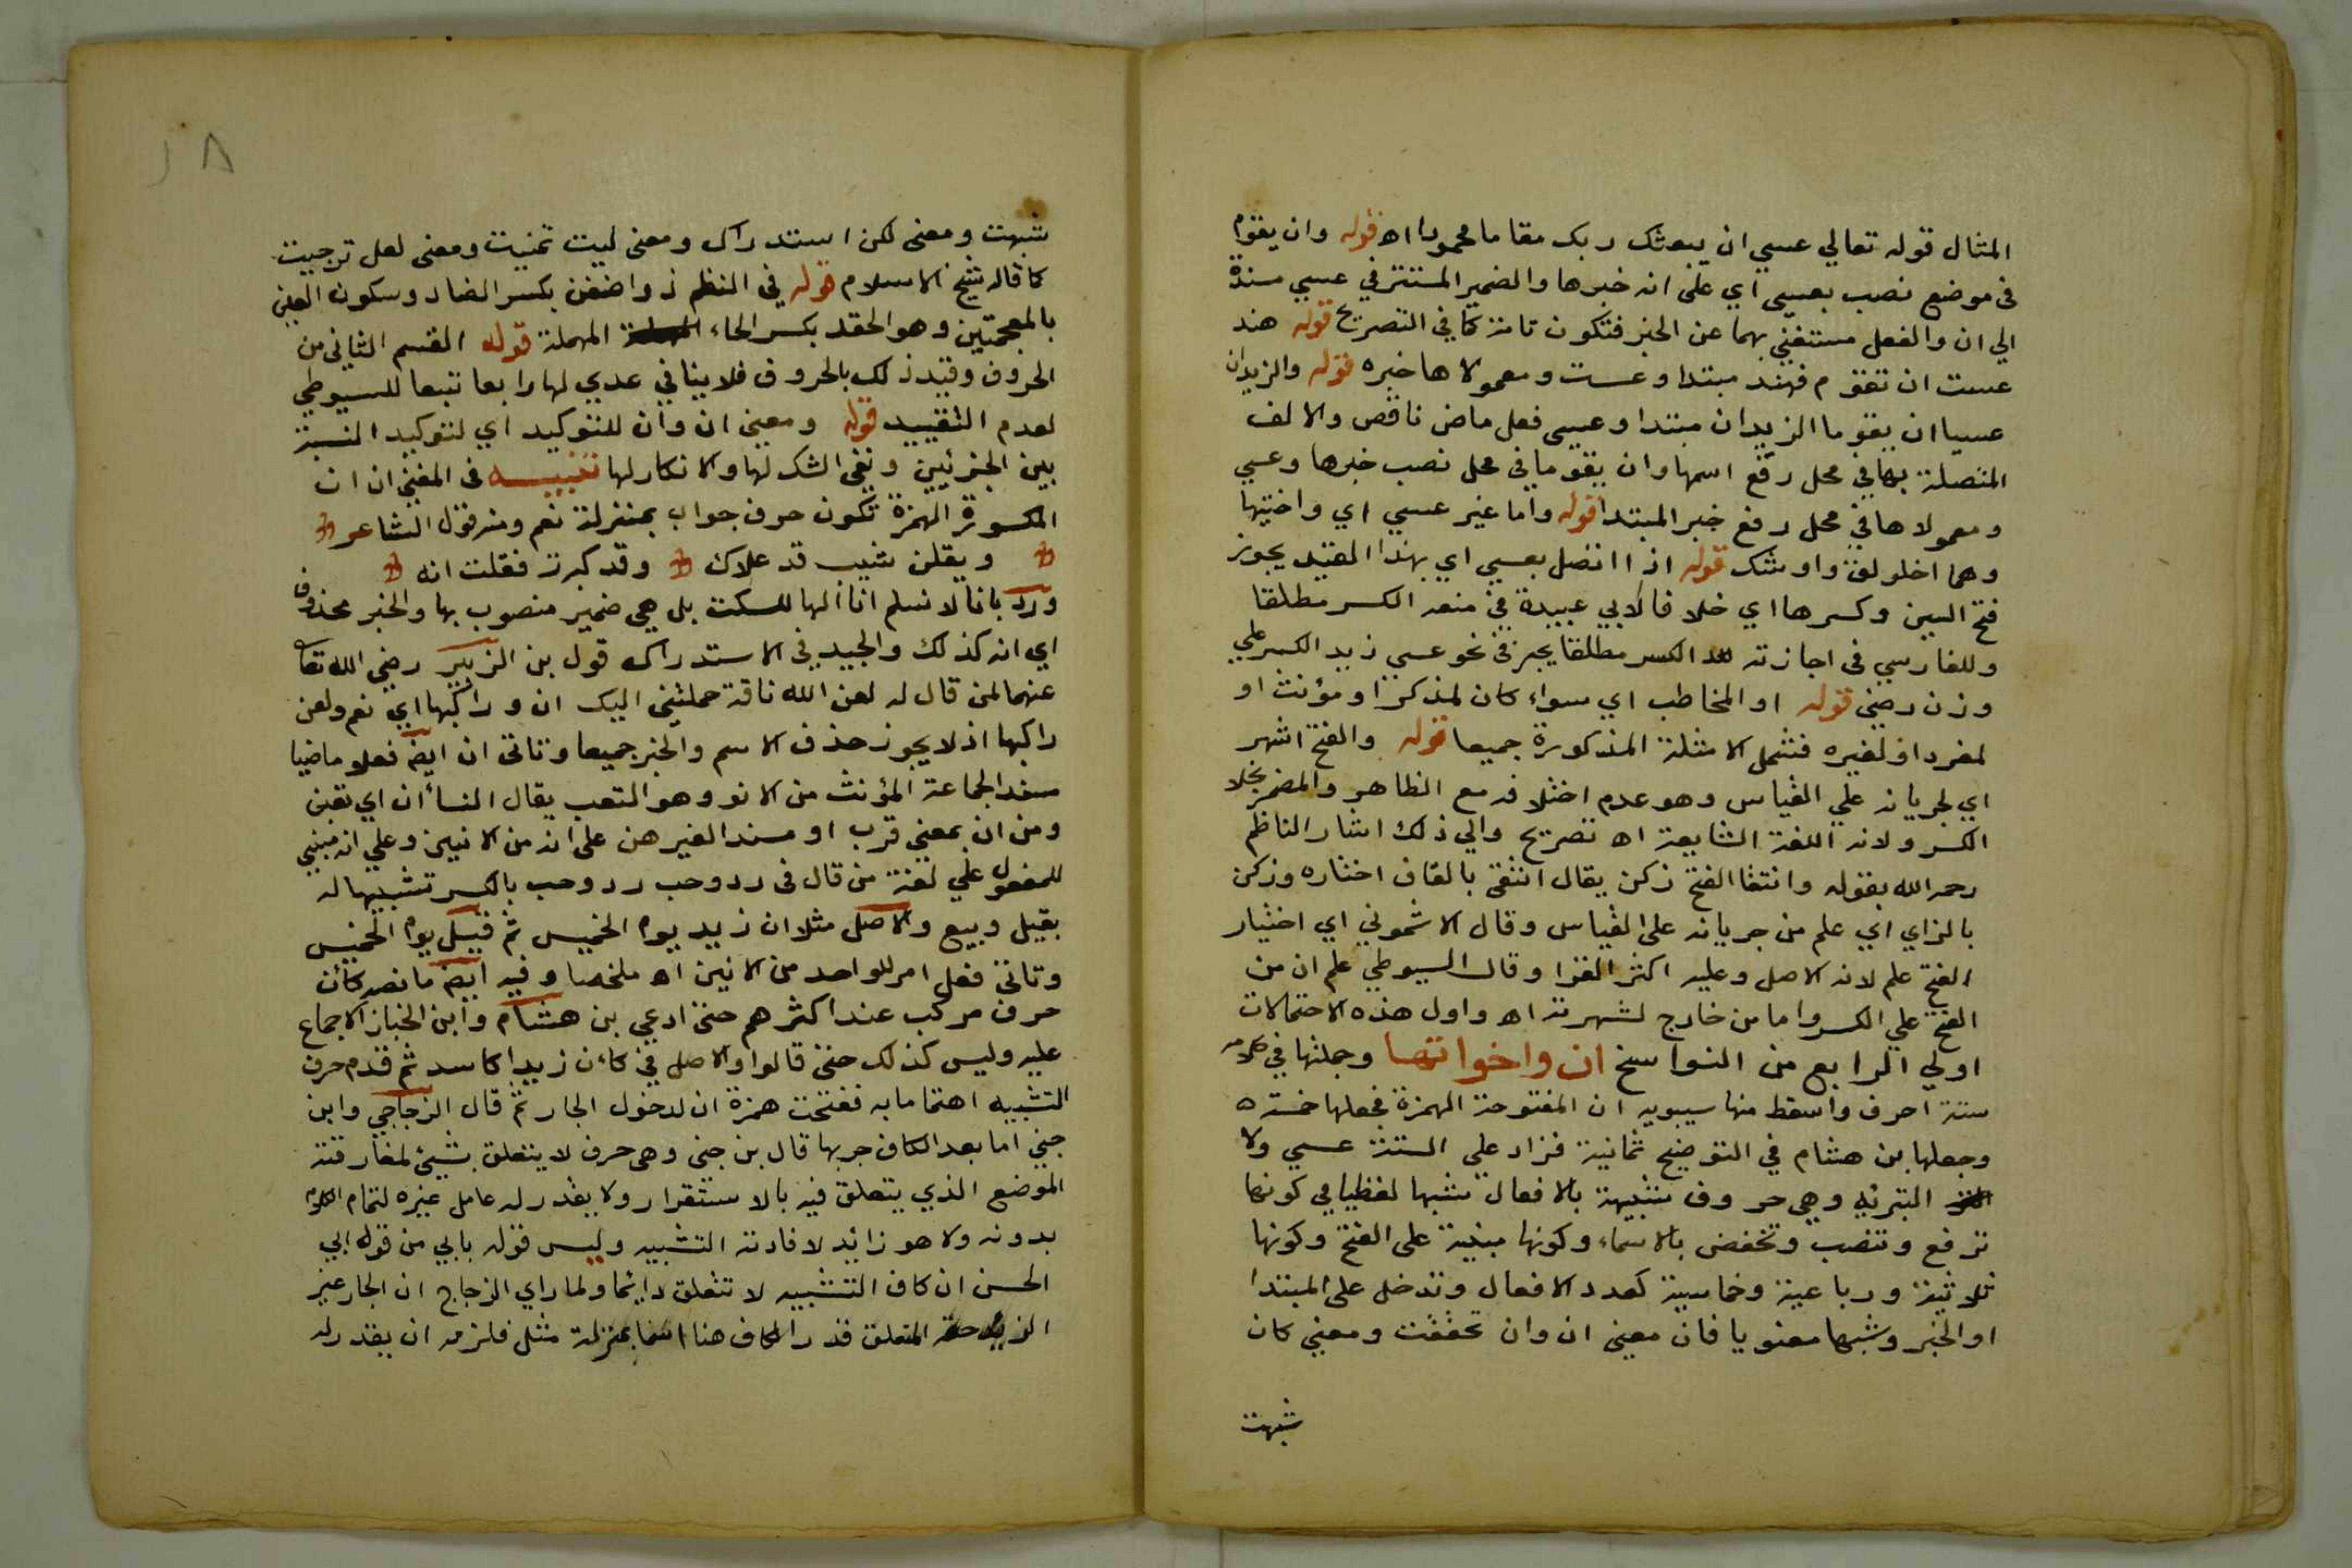 المثال قوله تعالي عسي ان يبعثك ربك مقاما محمودا اه قوله وان يقوم
في موضع نصب بعسى اي على انه خبرها والضمير المستتر في عسي مسندة
الي ان والفعل مستغني بهما عن الخبر فتكون تامة كما في التصريح قوله هند
عست ان تقوم فهند مبتدا وعست ومعمولاها خبره قوله والزيدان
عسيا ان يقوما الزيدان مبتدا وعسى فعل ماض ناقص والالف
المتصلة بها في محل رفع اسمها وان يقوما في محل نصب خبرها وعسي
ومعمولاها في محل رفع خبر المبتدا قوله واما غير عسي اي واختيها
وهما اخلولق واوشك قوله اذا اتصل بعسي اي بهذا المقيد يجوز
فتح السين وكسرها اي خلافا لابي عبيدة في منعه الكسر مطلقا
وللفارسي في اجازته الكسر مطلقا يجيز في نحو عسي زيد الكسر علي
وزن رضي قوله او المخاطب اي سواء كان لمذكر او مؤنث او
لمفرد او لغيره فشمل الامثلة المذكورة جميعا قوله والفتح اشهر
اي لجريانه علي القياس وهو عدم اختلافه مع الظاهر والمضمر بخلاف
الكسر ولانه اللغة الشايعة اه تصريح والي ذلك اشار الناظم
رحمه الله بقوله وانتقا الفتح زكن يقال انتقى بالقاف اختاره وزكن
بالزاي اي علم من جريانه على القياس وقال الاشموني اي اختيار
الفتح علم لانه الاصل وعليه اكثر القرا وقال السيوطي علم ان من
الفتح علي الكسر واما من خارج لشهرته اه واول هذه الاحتمالات
اولي الرابع من النواسخ ان واخواتها وجملتها في كلامه
ستة احرف واسقط منها سيبويه ان المفتوحة الهمزة فجعلها خمسة
وجعلها بن هشام في التوضيح ثمانية فزاد علي الستة عسي ولا
التبرئه وهي حروف شبيهة بالافعال شبها لفظيا في كونها
ترفع وتنصب وتختص بالاسماء وكونها مبنية على الفتح وكونها
ثلاثية ورباعية وخماسية كعدد الافعال وتدخل على المبتدا
او الخبر وشبها معنويا فان معنى ان وان تحققت ومعنى كان
شبهت
٨
شبهت ومعنى لكن استدراك ومعنى ليت تمنيت ومعنى لعل ترجيت
كما قاله شيخ الاسلام قوله في النظم ذو اضغن بكسر الضاد وسكون الغين
بالمعجمتين وهو الحقد بكسر الحاء المهملة قوله القسم الثاني من
الحروف وقيد ذلك بالحروف فلا ينافي عدي لها رابعا تبعا للسيوطي
لعدم التقييد قوله ومعنى ان وان للتوكيد اي لتوكيد النسبة
بين الجزئين ونفي الشك لها والانكار لها تنبيه في المغني ان ان
المكسورة الهمزة تكون حرف جواب بمنزلة نعم ومنه قول الشاعر
ويقلن شيب قد علاك وقد كبرت فقلت انه
ورد بانا لا نسلم ان الها للسكت بل هي ضمير منصوب بها والخبر محذوف
اي انه كذلك والجيد في الاستدراك قول بن الزبير رضي الله تعا
عنهما لمن قال له لعن الله ناقة حملتني اليك ان وراكبها اي نعم ولعن
راكبها اذ لا يجوز حذف الاسم والخبر جميعا وتاتي ان ايض فعلا ماضيا
مسندا لجماعة المؤنث من الانو وهو التعب يقال النسا ان اي تعبن
ومن ان بمعني قرب او مسندا لغيرهن على انه من الانين وعلي انه مبني
للمفعول علي لغة من قال في رد وحب رد وحب بالكسر تشبيها له
بقيل وبيع والاصل مثلا ان زيد يوم الخميس ثم قيل يوم الخميس
وتاتي فعل امر للواحد من الانين اه ملخصا وفيه ايض ما نصه كان
حرف مركب عند اكثرهم حتى ادعي بن هشام وابن الخباز الاجماع
عليه وليس كذلك حتى قالوا والاصل في كان زيدا كاسد ثم قدم حرف
التشبيه اهتماما به ففتحت همزة ان لدخول الجار ثم قال الزجاجي وابن
جني اما بعد الكاف جر بها قال بن جني وهي حرف لا يتعلق بشيئ لمفارقته
الموضع الذي يتعلق فيه بالاستقرار ولا يقدر له عامل غيره لتمام الكلام
بدونه ولا هو زائد لافادته التشبيه وليس قوله بابي من قول ابي
الحسن ان كاف التشبيه لا تتعلق دايما ولما راي الزجاج ان الجار غير
الزايد حقه المتعلق قدر الكاف هنا اسما بمنزلة مثل فلزمه ان يقدر له